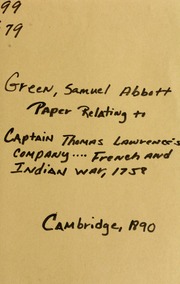 99
79
Green, Samuel Abbott
Paper Relating to
Captain Thomas Lawrence's
Company .... French and
Indian War, 1758
Cambridge, 1890